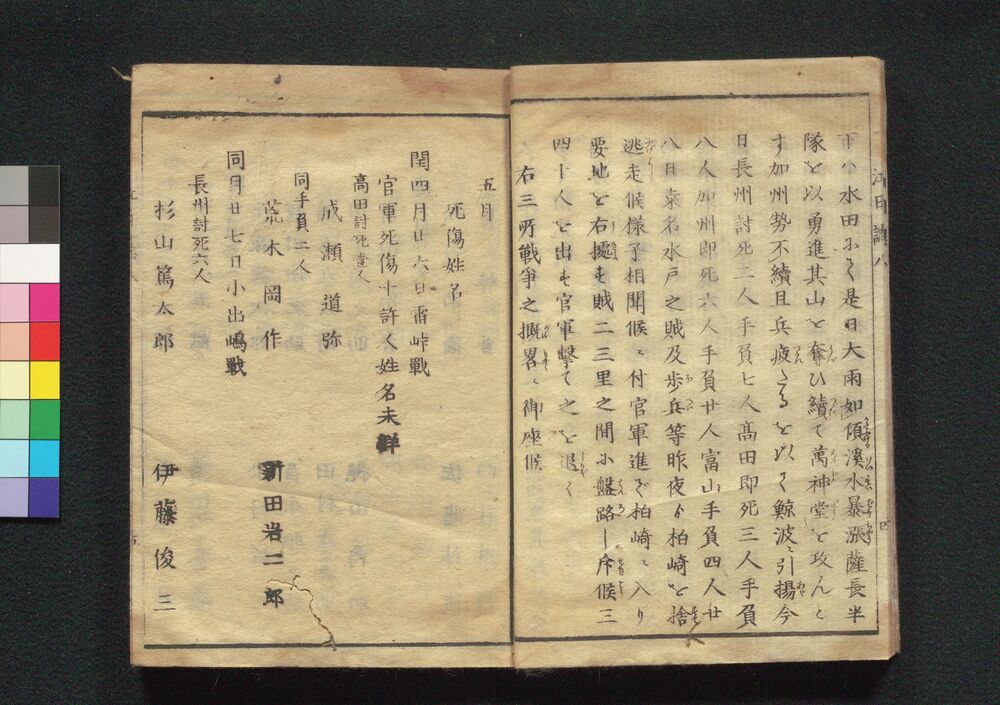 下ハ水田ニて是日大雨如傾溪水暴漲薩長半
隊を以勇進其山を奪ひ續て萬神堂を攻んと
す加州勢不續且兵疲たるを以て鯨波ニ引揚今
日長州討死二人手負七人髙田即死三人手負
八人加州即死六人手負廿人富山手負四人廿
八日桑名水戸之賊及歩兵等昨夜ゟ柏崎を捨
逃走候様子相聞候ニ付官軍進で柏崎ニ入り
要地を右擁す賊二三里之間小盤路ニ斥候三
四十人を出す官軍撃て之を退く
右三所戰爭之概畧ニ御座候
五月
死傷姓名
閏四月廿六日雷峠戰
官軍死傷十許人姓名未詳
高田討死壹人
成瀬道弥
同手負二人
荒木岡作 新田岩二郎
同月廿七日小出嶋戰
長州討死六人
杉山篤太郎 伊藤俊三